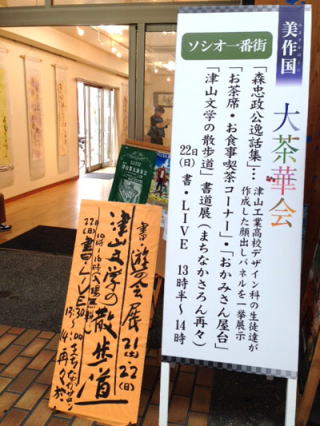 美作国
大茶華会
ソシオ一番街
「森忠政公逸話集」…
津山工業高校デザイン科の生徒達が
作成した顔出しパネルを一挙展示
「お茶席・お食事喫茶コーナー」・「おかみさん屋台」
「津山文学の散歩道」書道展(まちなかさろん再々)
22日(日) 書・LIVE 13時半~14時
書・遊の会展 21(土) 22(日)
10時~16時(入場無料)
津山文学の散歩道
22(日) 書LIVE
まちなかサロン再々於